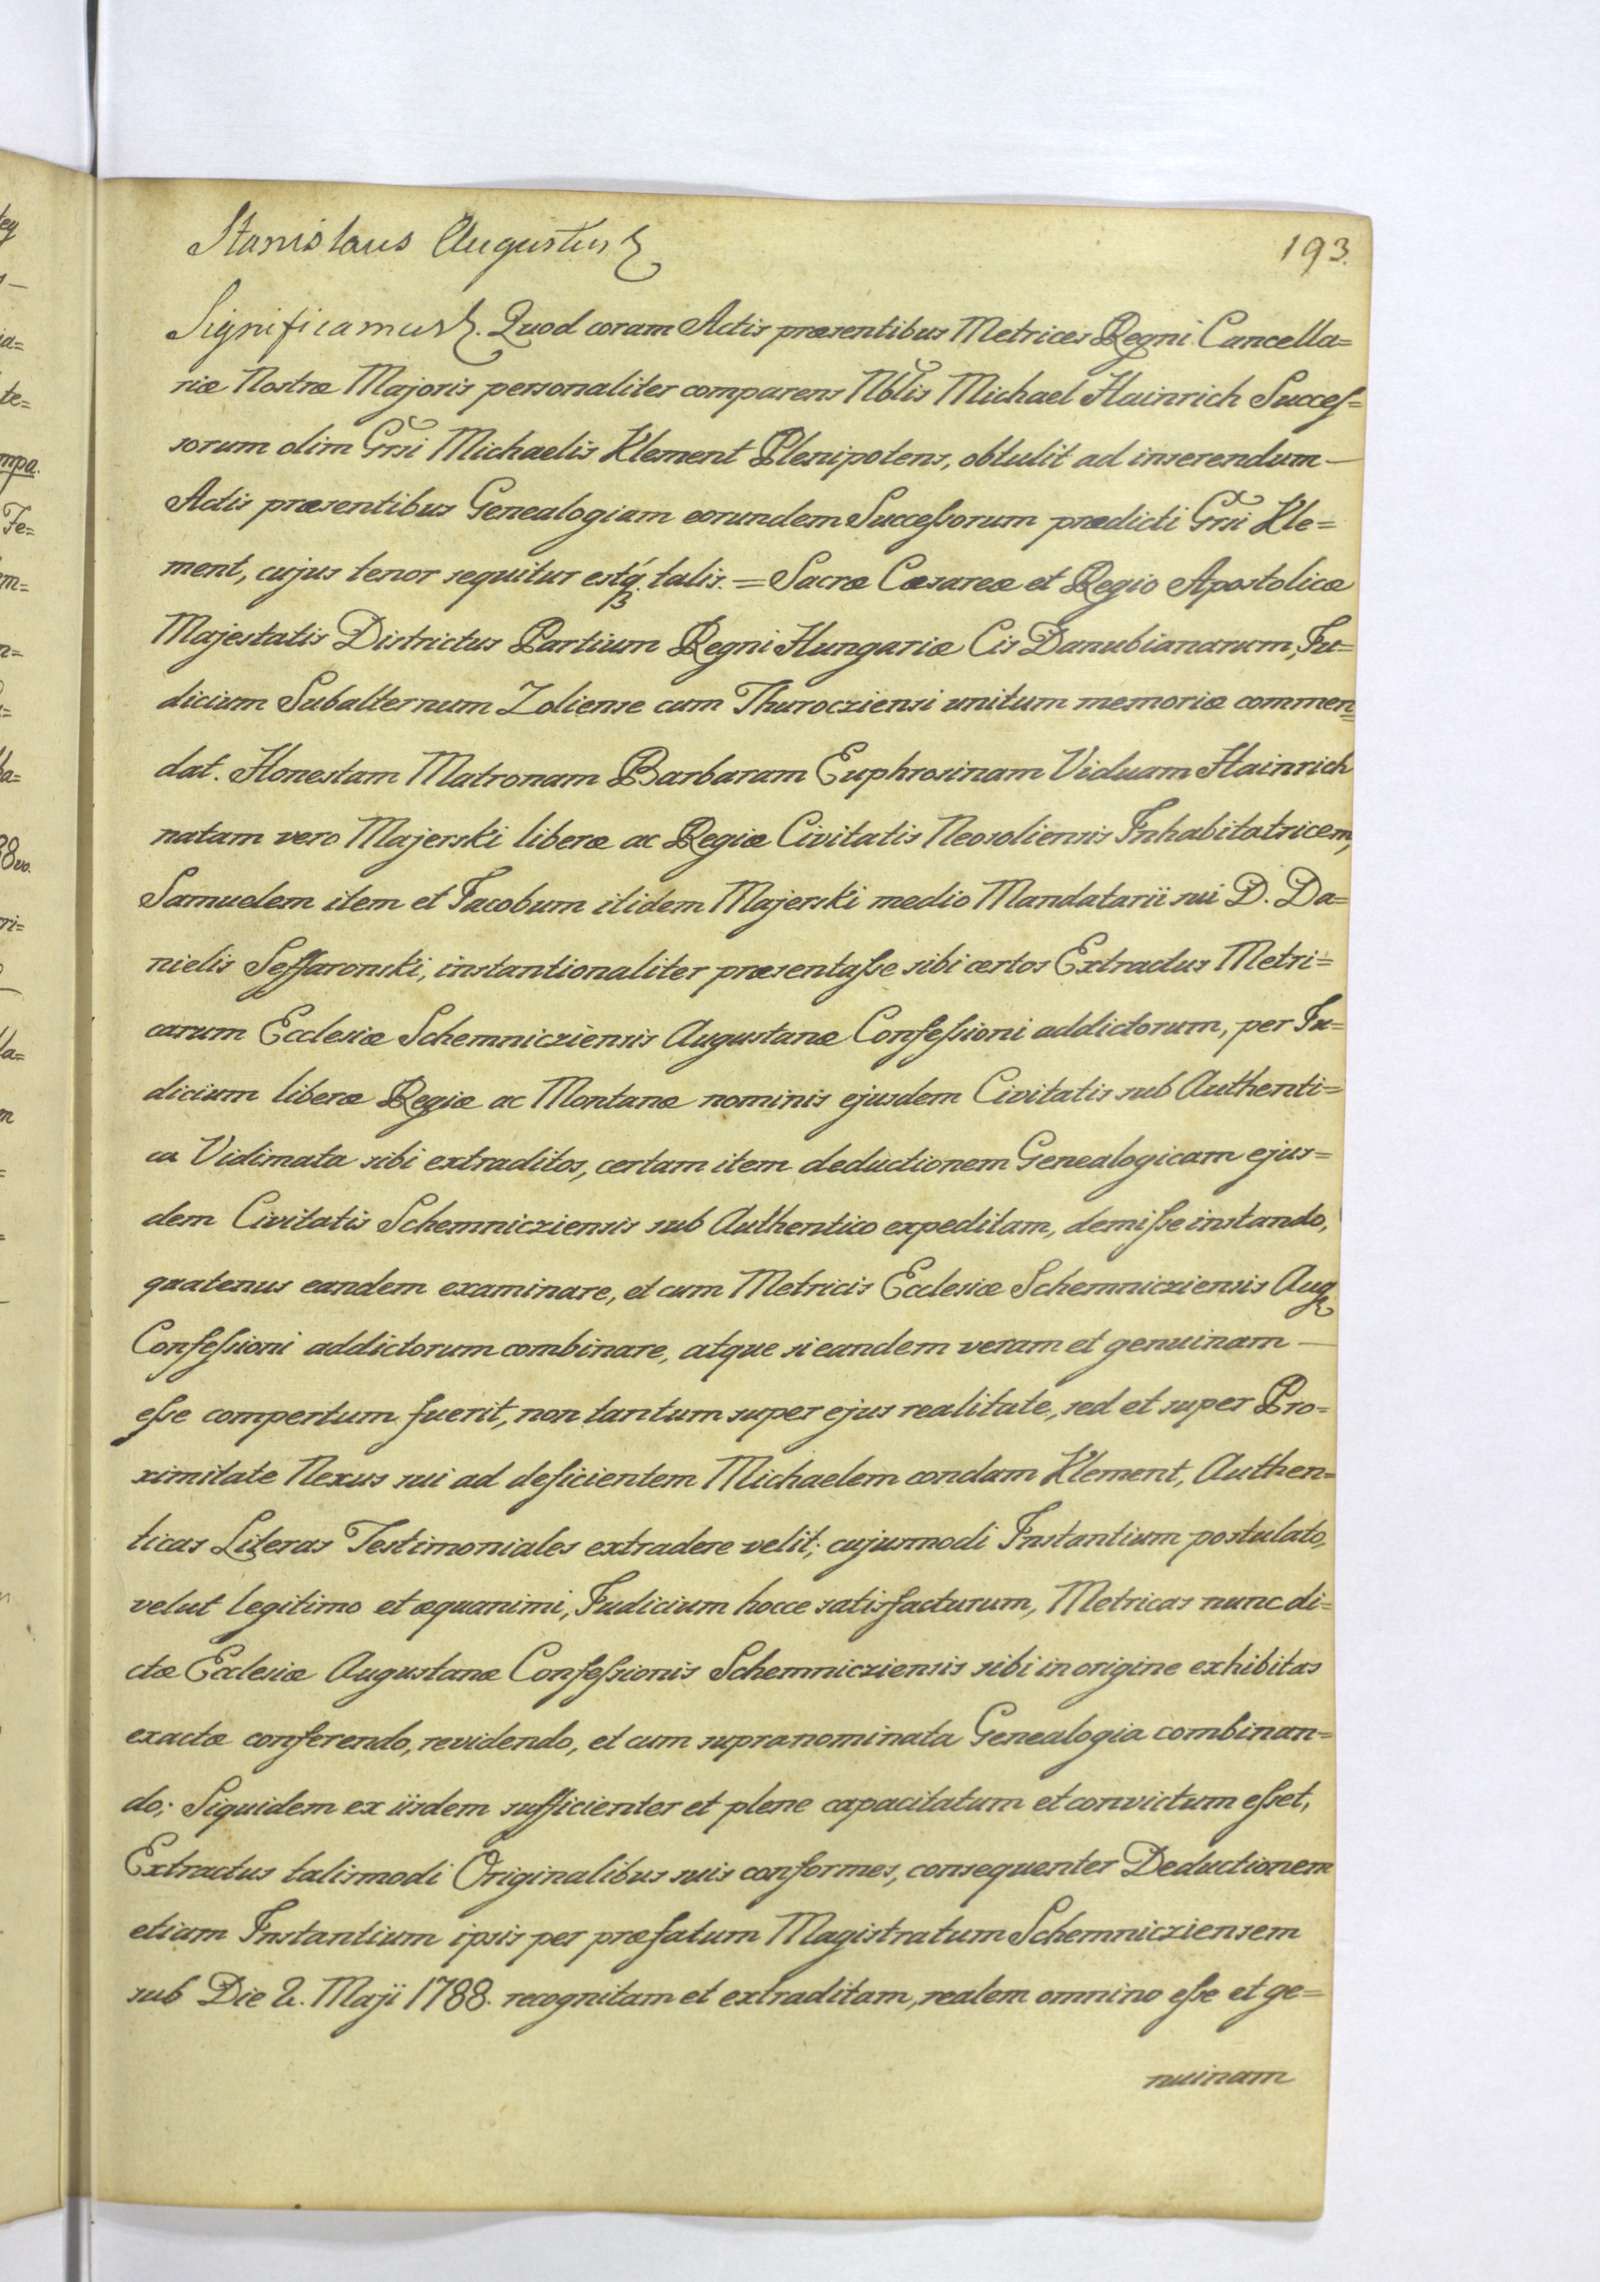 193.
Stanislaus Augustus &
Significamus &. Quod coram Actis præsentibus Metrices Regni Cancella=
riæ Nostræ Majoris personaliter comparens Nblis Michael Hainrich Succeſ=
sorum olim Grsi Michaelis Klement Plenipotens, obtulit ad inserendum —
Actis præsentibus Genealogiam eorundem Succeſsorum prædicti Grsi Kle=
ment, cujus tenor sequitur estq́. talis. = Sacræ Cæsareæ et Regio Apostolicæ
Majestatis Districtus Partium Regni Hungariæ Cis Danubianarum, Ju=
dicium Subalternum Zoliense cum Thurocziensi unitum memoriæ commen=
dat. Honestam Matronam Barbaram Euphrosinam Viduam Hainrich
natam vero Majerski liberæ ac Regiæ Civitatis Neosoliensis Inhabitatricem,
Samuelem item et Jacobum itidem Majerski medio Mandatarii sui D. Da=
nielis Seffaronski, instantionaliter præsentaſse sibi certos Extractus Metri=
carum Ecclesiæ Schemnicziensis Augustanæ Confeſsioni addictorum, per Ju=
dicium liberæ Regiæ ac Montanæ nominis ejusdem Civitatis sub Authenti=
ca Vidimata sibi extraditos, certam item deductionem Genealogicam ejus=
dem Civitatis Schemnicziensis sub Authentico expeditam, demiſse instando,
quatenus eandem examinare, et cum Metricis Ecclesiæ Schemnicziensis Aug
Confeſsioni addictorum combinare, atque si eandem veram et genuinam —
eſse compertum fuerit, non tantum super ejus realitate, sed et super Pro=
ximitate Nexus sui ad deficientem Michaelem condam Klement, Authen=
ticas Literas Testimoniales extradere velit; cujusmodi Instantium postulato,
velut legitimo et æquanimi, Judicium hocce satisfacturum, Metricas nunc di=
ctæ Ecclesiæ Augustanæ Confeſsionis Schemnicziensis sibi in origine exhibitas
exactæ conferendo, revidendo, et cum supranominata Genealogia combinan=
do; Siquidem ex iisdem sufficienter et plene capacitatum et convictum eſset,
Extractus talismodi Originalibus suis conformes, consequenter Deductionem
etiam Instantium ipsis per præfatum Magistratum Schemnicziensem
sub Die 2. Maji 1788. recognitam et extraditam, realem omnino eſse et ge=
nuinam